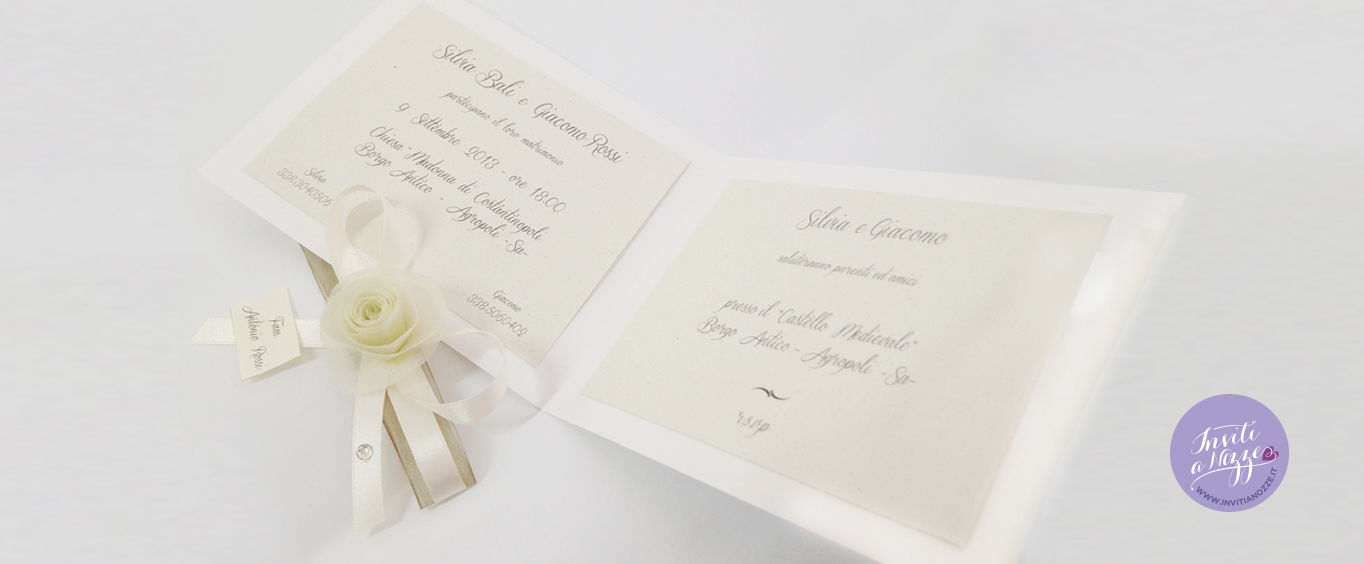 Silvia Bali e Giacomo Rossi
partecipano il loro matrimonio
9 Settembre 2013 - ore 18:00
Chiesa "Madonna di Costantinopoli
Borgo Antico - Agropoli -Sa-
Silvia
338.3040506
Giacomo
338.5060402
Fam.
Antonio Rossi
Silvia e Giacomo
saluteranno parenti ed amici
presso il "Castello Medievale"
Borgo Antico - Agropoli -Sa-
r.s.v.p
Inviti
a Nozze
WWW.INVITIANOZZE.IT